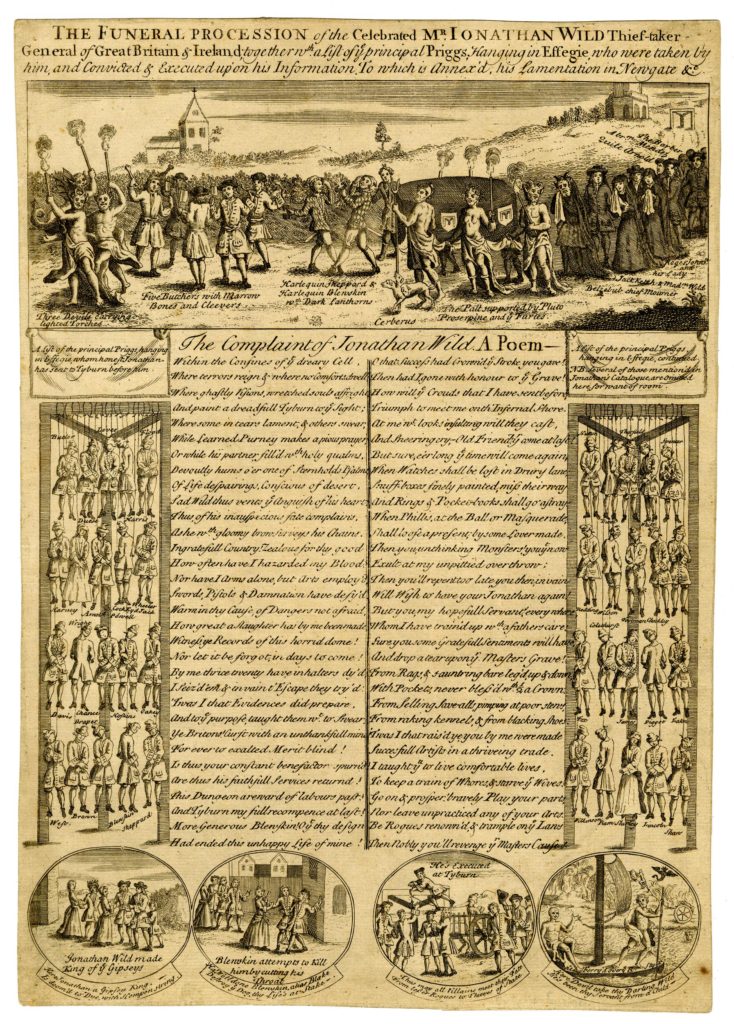 THE FUNERAL PROCESSION of the Celebrated Mr. IONATHAN WILD Thief-taker-
General of Great Britain & Ireland; together wth. a List of ye principal Priggs, Hanging in Effegie, who were taken by
him, and Convicted & Executed upon his Information, To which is Annex'd, his Lamentation in Newgate &c.
Three Devils Carrying
lighted Torches
Five Butchers with Marrow
Bones and Cleevers
Harlequin Sheppard &
Harlequin Blewskin
wth. Dark Lanthorns
Cerberus
The Pall supported by Pluto
Proserpine and ye Furies
Belzebub chief Mourner
Jack Ketch & Madm. Wild
A List of the principal Priggs hanging
in Effegie, whom honest Jonathan
has sent to Tyburn before him
The Complaint of Jonathan Wild. A Poem—
List of the principal Priggs
hanging in Effegie, continued
NB. Several of those mention'd in
Jonathans Catalogue, are omitted
here for want of room
Within the Confines of ye dreary Cell,
Where terrors reign & where no comforts dwell
Where ghastly Visions, wretched souls affright
And paint a dreadfull Tyburn to ye Sight;
Where some in tears lament, & others swear,
While Learned Purney makes a pious prayer
Or while his partner, fill'd wth. holy qualms,
Devoutly hums o'er one of Sternholds Psalms
Of Life despairing, Conscious of desert,
Sad Wild thus vents ye anguish of his heart
Thus of his inauspicious fate complains,
As he wth. gloomy brow surveys his Chains.
Ingratefull Country! Zealous for thy good
How often have I hazarded my Blood!
Nor have I Arms alone, but Arts employ'd
Swords, Pistols & Damnation have defy'd
Warm in thy Cause of Dangers not afraid
How great a slaughter has by me been made
Witness ye Records of this horrid dome!
Nor let it be forgot, in days to come!
By me thrice twenty have in halters dy'd
I seiz'd 'em & in vain t'Escape they try'd
Twas I that Evidences did prepare,
And to ye purpose, taught them wt. to Swear
Ye Britons! Curst with an unthankfull mind
For ever to exalted Merit blind!
Is thus your constant benefactor spurn'd
Are thus his faithfull Services return'd!
This Dungeon a reward of labours past!
And Tyburn my full recompence at last!
More Generous Blewskin! O! thy design
Had ended this unhappy Life of mine!
O that Success had Crown'd ye Stroke you gave!
Then had I gone with honour to ye Grave!
How will ye Crouds that I have sent before
Triumph to meet me on th'Infernal Shore.
At me wt. looks insulting will they cast,
And Sheering cry—Old Friend! come at last
But sure, e'er long ye time will come again
When Watches shall be lost in Drury lane
Snuff boxes finely painted, miss their way
And Rings & Pocket-books shall go astray
When Phillis, at the Ball, or Masquerade,
Shall lose a present by some Lover made.
Then you, unthinking Monsters! you yt. now
Exult at my unpittied overthrow:
Then you'll repent too late, you then, in vain
Will Wish to have your Jonathan again
But you, my hopefull Servants, every where
Whom I have train'd up wth. a fathers care,
Sure you some Gratefull Sentiments will have
And drop a tear upon ye Masters Grave!
From Rags, & sauntring bare leg'd up & down
With Pockets, never bless'd wth. ½ a Crown
From Selling Save-alls, pimping at poor stews
From raking kennels, & from blacking Shoes
Twas I that rais'd ye you by me were made
Succesfull Artists in a thriveing trade.
I taught ye to live comfortable lives,
To keep a train of Whores, & starve ye Wives.
Go on & prosper, bravely Play your parts
Nor leave unpractised any of your Arts
Be Rogues renown'd, & trample on ye Laws
Then Nobly you'll revenge ye Masters Cause
Butler
Harris
Harvey
Arnold
Wright
Davis
Hopkins
Oakey
West
Brown
Blewskin
Sheppard
Spencer
Lincoln
Shaw
Jonathan Wild made
King of ye Gipseys
Blewskin attempts to Kill
him by cutting his
Throat
He's Executed
at Tyburn
Thus may all Villains meet their Fate